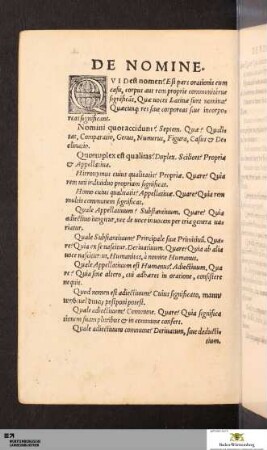 DE NOMINE.
QVID est nomen? Est pars orationis cum
casu, corpus aut rem proprie communiterue
significãs. Quæ uoces Latinæ sunt nomina?
Quæcunq; res siue corporeas siue incorpo
reas significant.
Nomini quot accidunt? Septem. Quæ? Quali
tas, Comparatio, Genus, Numerus, Figura, Casus & De
clinatio.
Quotuplex est qualitas? Duplex. Scilicet Propria
& Appellatiua.
Hieronymus cuius qualitatis? Propriæ. Quare? Quia
rem uni indiuiduo propriam significat.
Homo cuius qualitatis? Appellatiuæ. Quare? Quia rem
multis communem significat.
Quale Appellatiuum? Substantiuum. Quare? Quia
adiectiuo iungitur, nec de uoce in uocem per tria genera uas
riatur.
Quale Substantiuum? Principale siue Primitiuũ. Quas
re? Quia ex se nascitur. Deriuatiuum. Quare? Quia ab alia
uoce nascitur ut, Humanitas, à nomine Humanus.
Quale Appellatiuum est Humanus? Adiectiuum. Qua
re? Quia sine altero, cui adhæret in oratione, consistere
nequit.
Quod nomen est adiectiuum? Cuius significato,
postponi potest.
Quale adiectiuum? Commune. Quare? Quia significa
tionem suam pluribus & in commune confert.
Quale adiectiuum commune? Deriuatum, siue deductis
tium.
WÜRTTEMBERGISCHE
LANDESBIBLIOTHEK
Baden-Württemberg